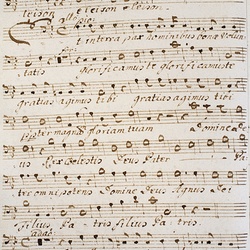 leison Eleison eleison.
in terra pax hominibus bonæ volun
tatis glorificamuste glorificamuste
gratias agimus tibi gratias agimus tibi
propter magnã gloriam tuam Domine De
us Rex Cœlestis Deus Pater
tris omnipotens Domine Deus Agnus Dei
Filius Pa - tris Filius Pa - tris